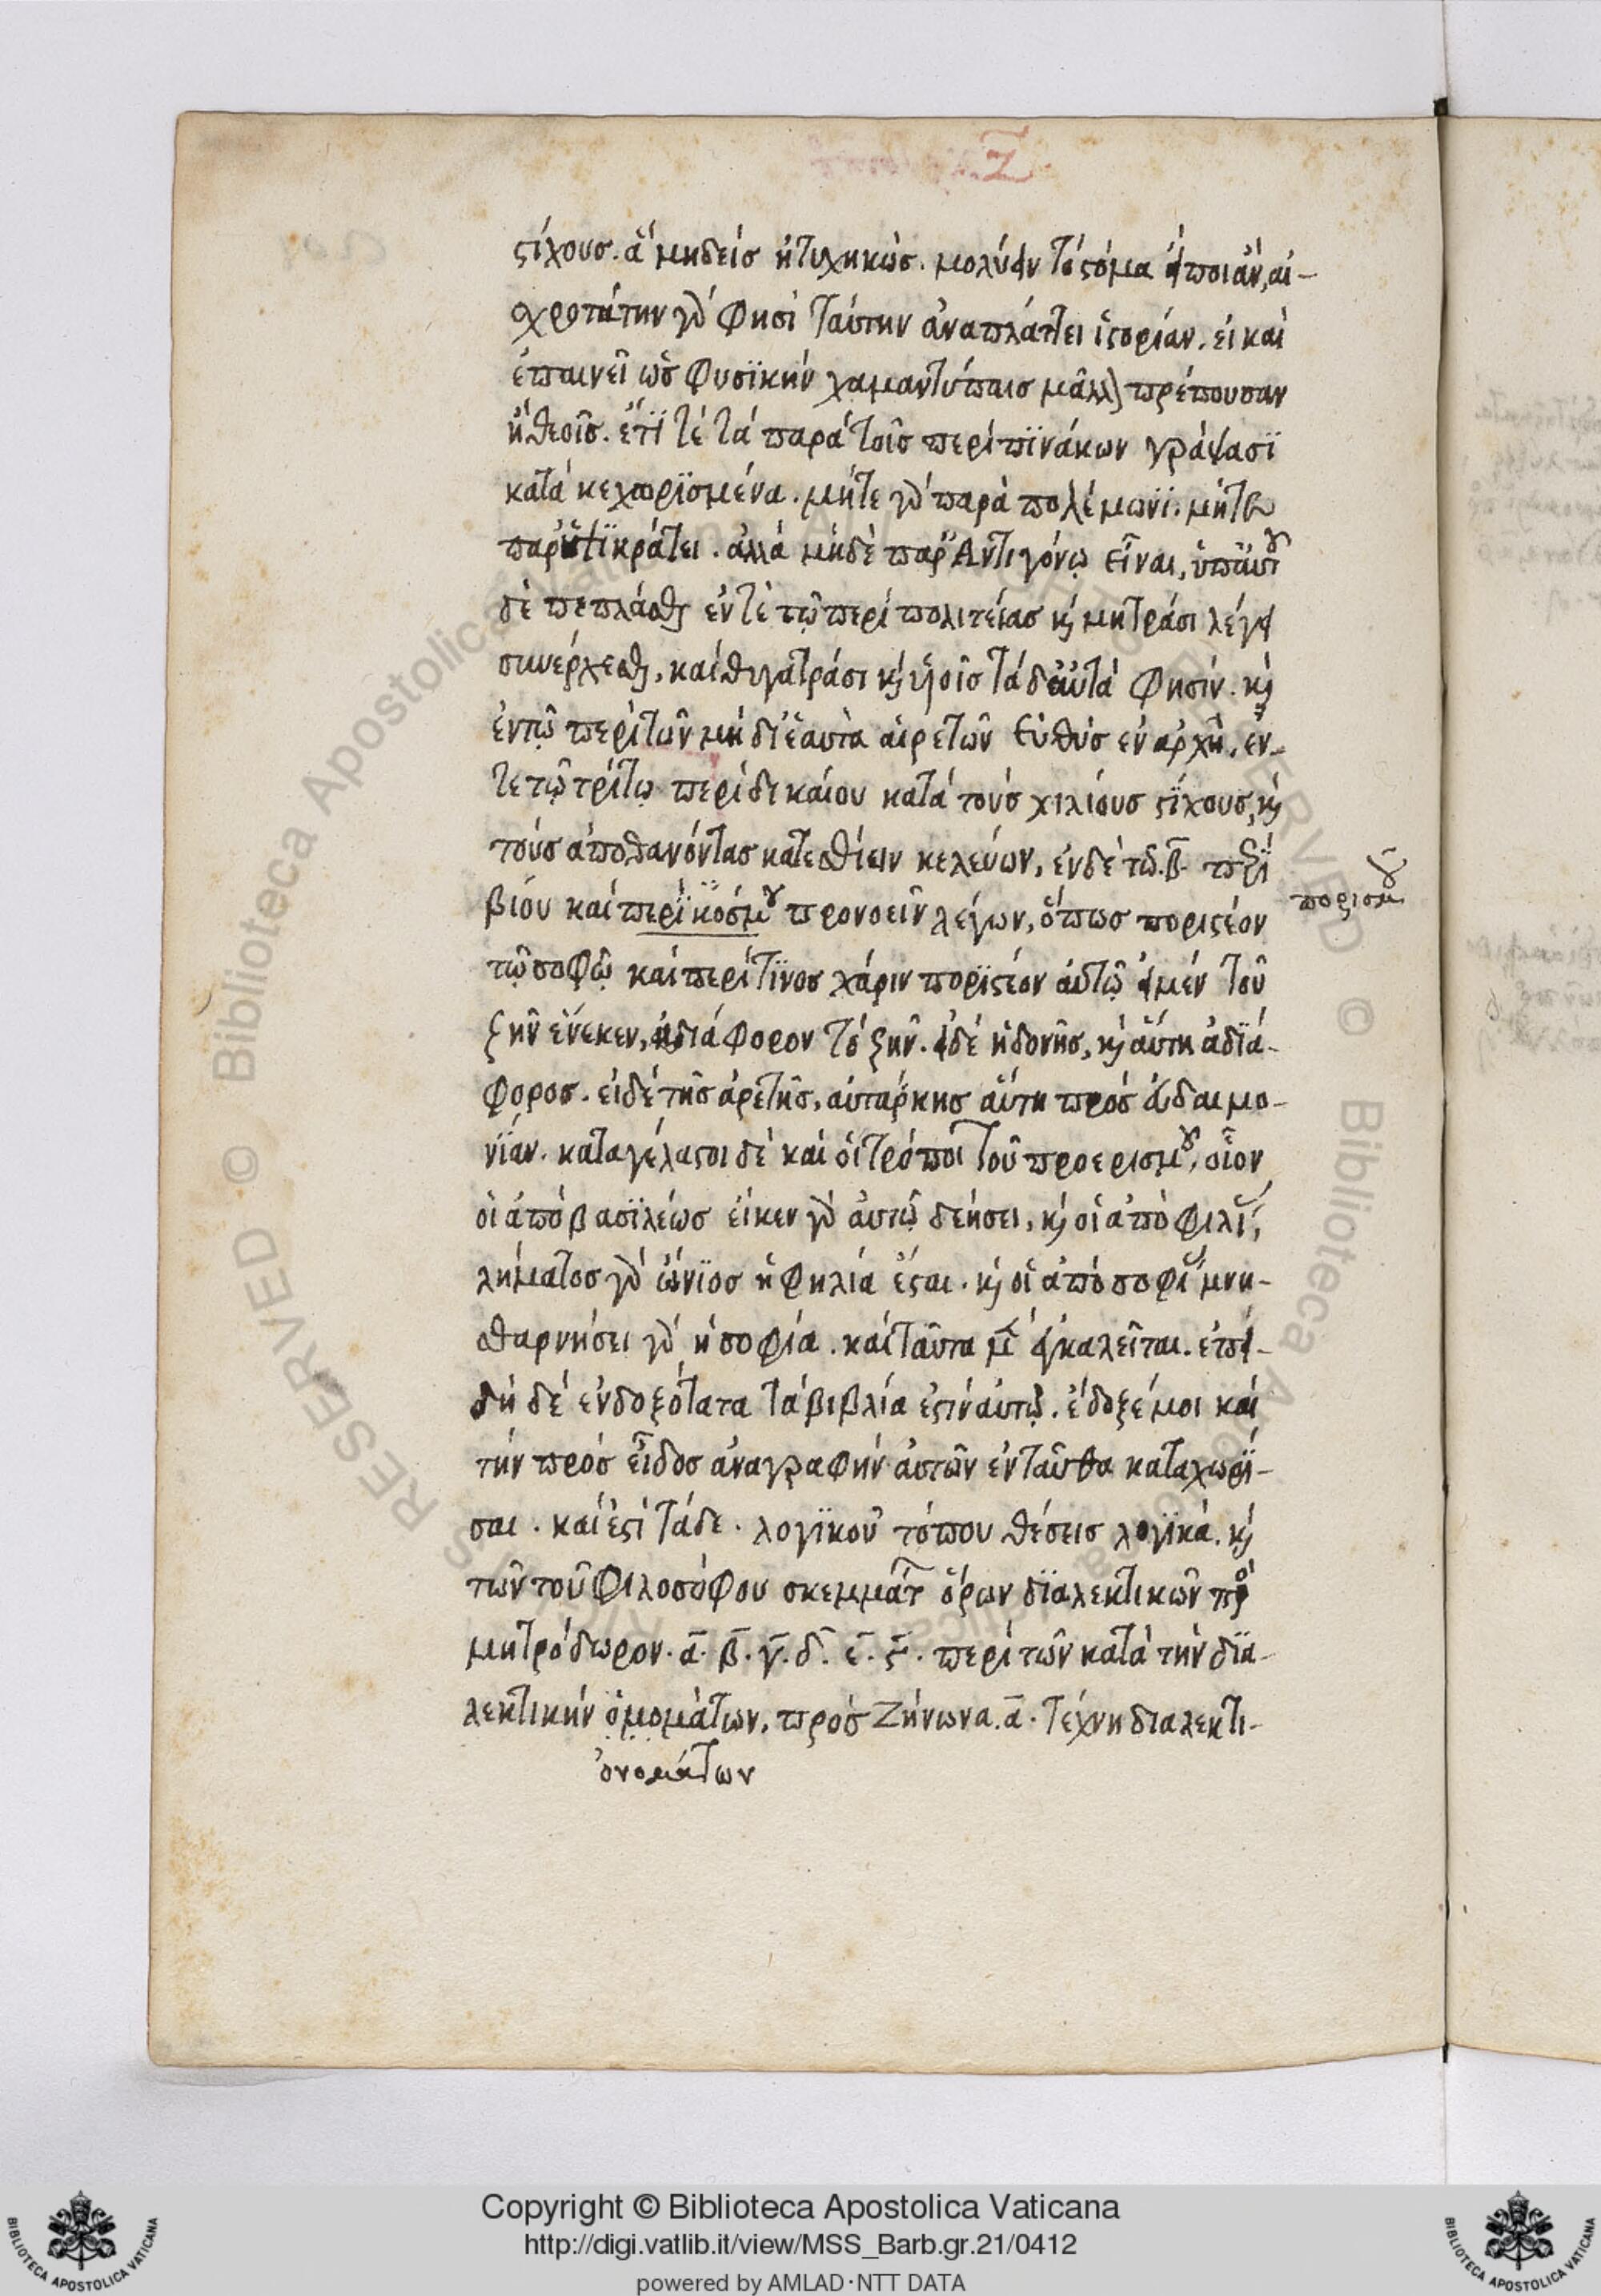 Ζ
στίχους. ἃ μηδεὶς ἠτυχηκὼς. μολύνειν τὸ στόμα εἴποι ἂν, αἰ-
σχροτάτην γὰρ φησὶ ταύτην ἀναπλάττει ἱστορίαν. εἰ καὶ
ἐπαινεῖ ὡς φυσϊκὴν χαμαιτύπαισ μᾶλλον πρέπουσαν
ἢ θεοῖς. ἔτϊ τὲ τὰ παρὰ τοῖς περὶ πϊνάκων γράψασϊ
κατὰ κεχωρϊσμένα. μήτε γὰρ παρὰ πολέμωνϊ. μήτε
παρ' ὑτϊκράτει. ἀλλὰ μὴδὲ παρ' Ἀντιγόνῳ εἶναι, ὑπ' αὐτοῦ
δὲ πεπλάσθαι ἐν τὲ τῷ περὶ πολιτείας καὶ μητράσι λέγει
συνέρχεσθαι, καὶ θυγατράσι καὶ υἱοῖς τὰ δ' αὐτὰ φησίν. καὶ
ἐν τῷ περὶ τῶν μὴ δι' ἑαυτὰ αἱρετῶν εὐθὺς ἐν ἀρχῇ. ἐν
τε τῷ τρίτῳ περὶ δικαίου κατὰ τοὺς χιλίους στϊχους, καὶ
τοὺς ἀποθανόντας κατεσθίειν κελεύων, ἐν δὲ τῶ. β̅. περϊ
βίου καὶ περὶ κόσμου προνοεῖν λέγων, ὅπως ποριστέον
πορισμοῦ
τῷ σοφῷ καὶ περὶ τϊνος χάριν πορϊστέον αὐτῷ εἰ μὲν τοῦ
ζῆν ἕνεκεν, ἀδιάφορον τὸ ζῆν. εἰ δὲ ἡδονῆς, καὶ αὕτη ἀδϊά-
φορος. εἰ δὲ τῆς ἀρετῆς, αὐτάρκης αὕτη πρὸς εὐδαιμο-
νϊαν. καταγέλαστοι δὲ καὶ οἱ τρόποι τοῦ προερισμοῦ, οἷον
οἱ ἀπὸ βασϊλέως εἴκεν γὰρ αὐτῷ δεήσει, καὶ οἱ ἀπὸ φιλϊ,
λήματος γὰρ ὤνϊος ἡ φηλία ἔσται. καὶ οἱ ἀπὸ σοφϊ μνη-
σθαρνήσει γὰρ ἡ σοφία. καὶ ταῦτα μὲν ἐγκαλεῖται. ἐπει-
δὴ δὲ ἐνδοξότατα τὰ βιβλία ἐστὶν αὐτῷ. ἔδοξέ μοι καὶ
τὴν πρὸς εἶδος ἀναγραφὴν αὐτῶν ἐνταῦθα καταχωρϊ-
σαι. καὶ ἐστὶ τάδε. λογϊκοῦ τόπου θέσεις λογϊκά. καὶ
τῶν τοῦ φιλοσόφου σκεμμάτων ὅρων δϊαλεκτικῶν πρὸς
μητρόδωρον. α̅. β̅. γ̅. δ̅. ε̅. ϛ̅. περὶ τῶν κατὰ τὴν δϊα-
λεκτικὴν ὀμομάτων, πρὸς Ζήνωνα. α̅. τέχνη διαλεκτι-
ὀνομάτων
Copyright © Biblioteca Apostolica Vaticana
http://digi.vatlib.it/view/MSS_Barb.gr.21/0412
powered by AMLAD·NTT DATA